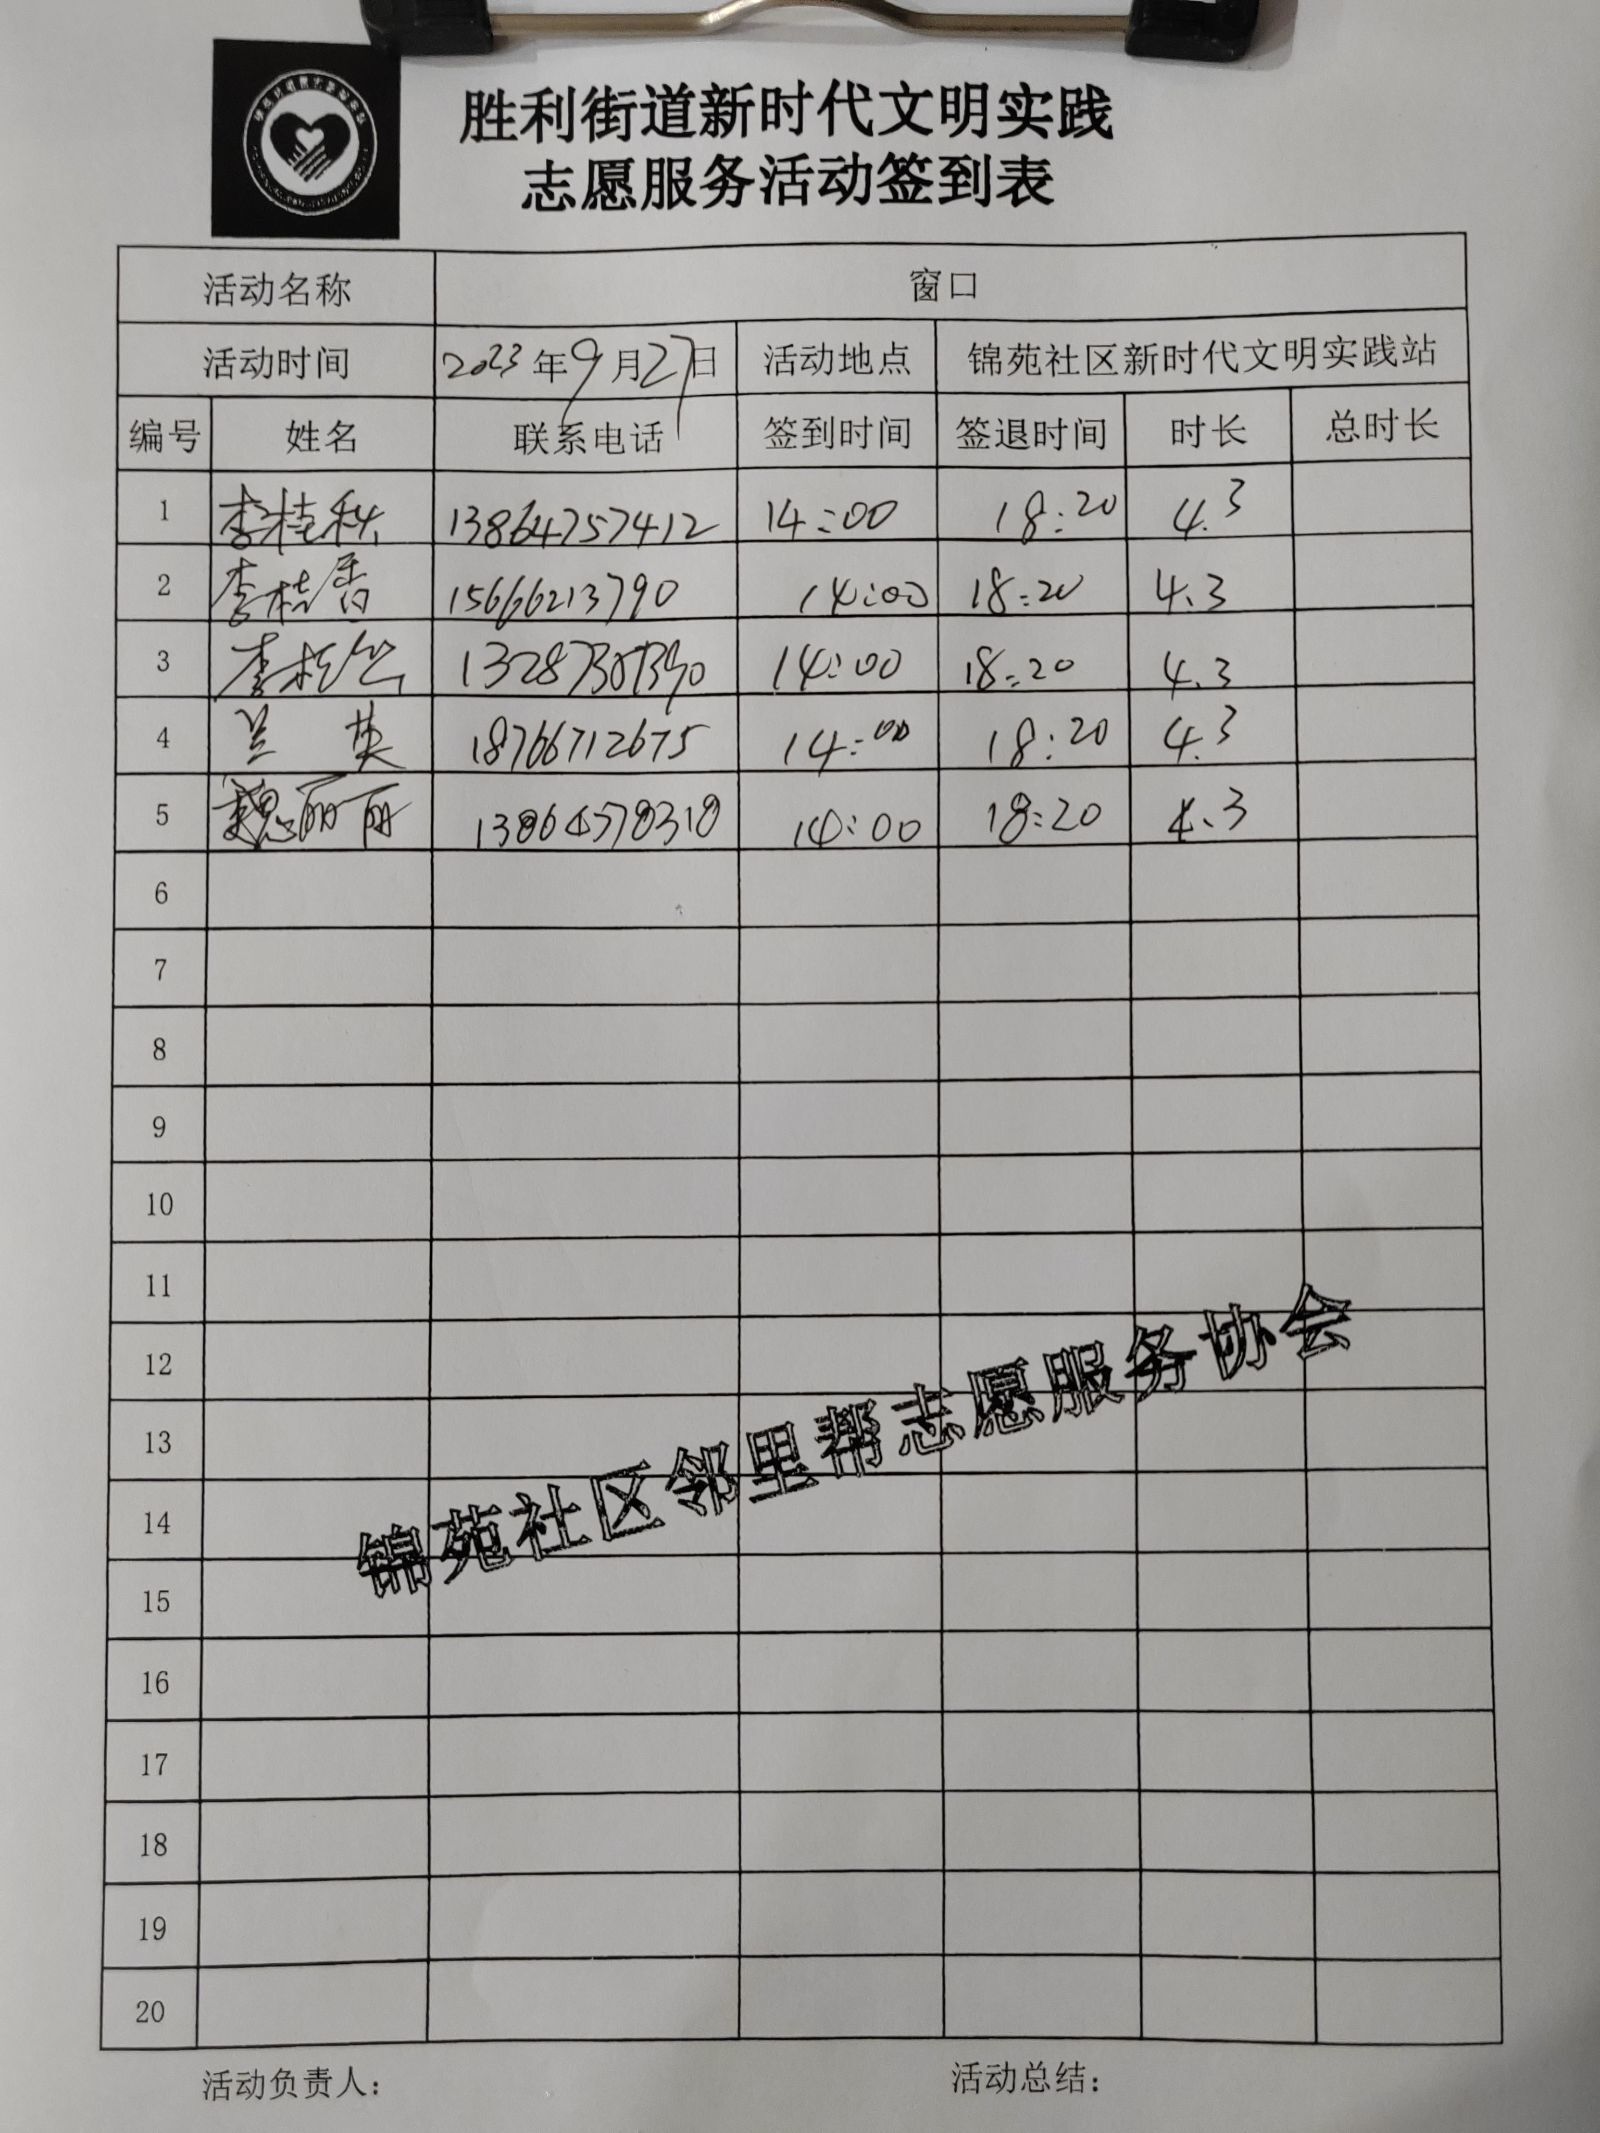 胜利街道新时代文明实践
志愿服务活动签到表
活动名称 窗口
活动时间 2023年9月27日 活动地点 锦苑社区新时代文明实践站
编号 姓名 联系电话 签到时间 签退时间 时长 总时长
1 李桂秋 13864757412 14:00 18:20 4.3
2 李桂香 15666213790 14:00 18:20 4.3
3 李 14:00 18:20 4.3
4 兰英 18766712675 14:00 18:20 4.3
5 魏丽丽 13864578318 14:00 18:20 4.3
6
7
8
9
10
11
12
13
14
15
16
17
18
19
20
锦苑社区邻里帮志愿服务协会
活动负责人： 活动总结：